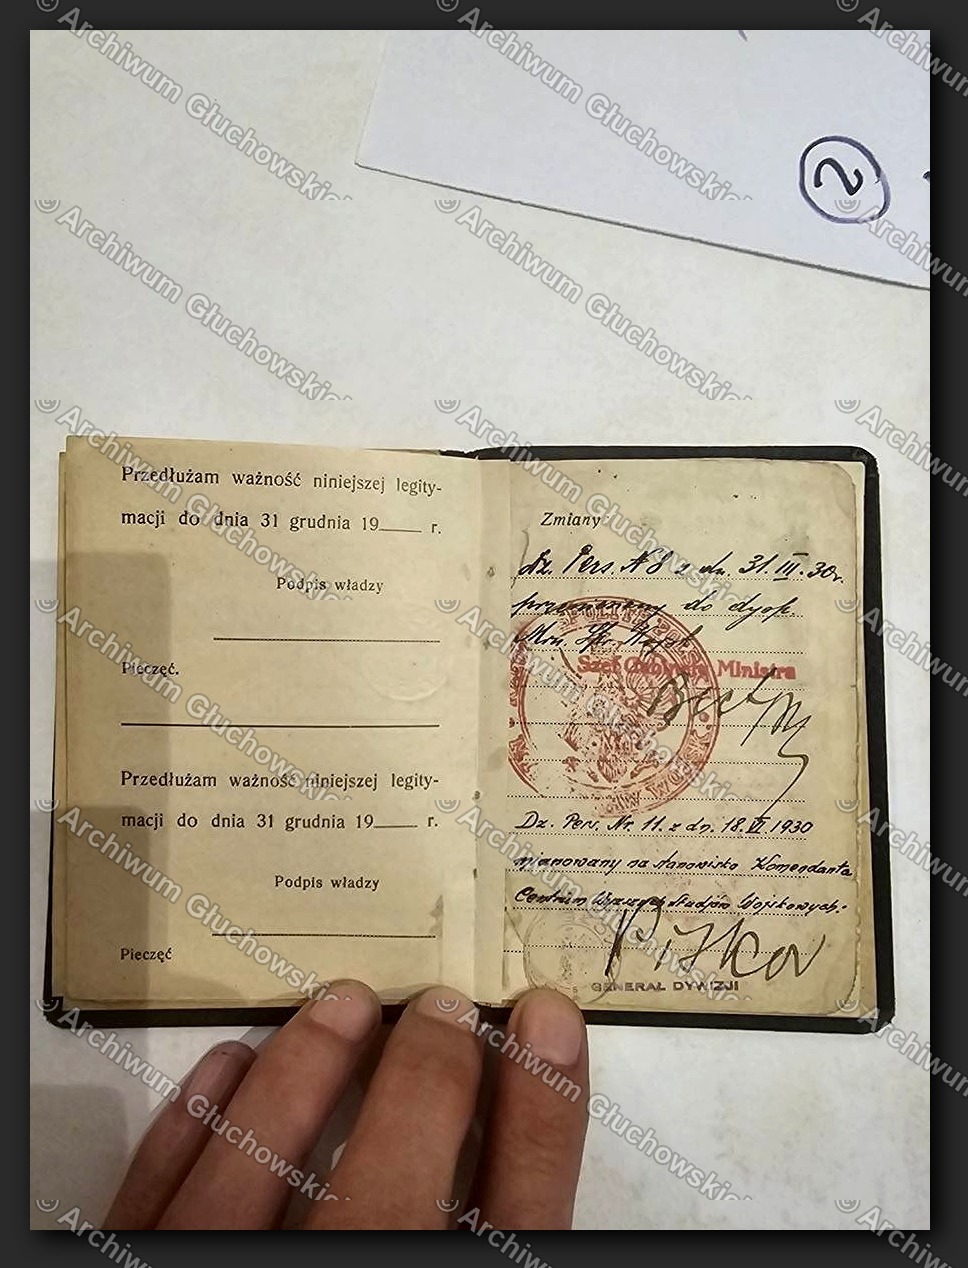 2
Przedłużam ważność niniejszej legity-
macji do dnia 31 grudnia 19____ r.
Podpis władzy
Pieczęć.
Przedłużam ważność niniejszej legity-
macji do dnia 31 grudnia 19____ r.
Podpis władzy
Pieczęć
Zmiany
Dz. Pers. N 8 z dn. 31.III.30r.
przeniesiony do dysp.
Mrn. Spr. Wojsk
Szef Gabinetu Ministra
Dz. Pers. Nr. 11. z dn. 18.VI.1930
mianowany na stanowisko Komendanta
Centrum Wyższych Studjów Wojskowych.
GENERAŁ DYWIZJI
© Archiwum Głuchowskie